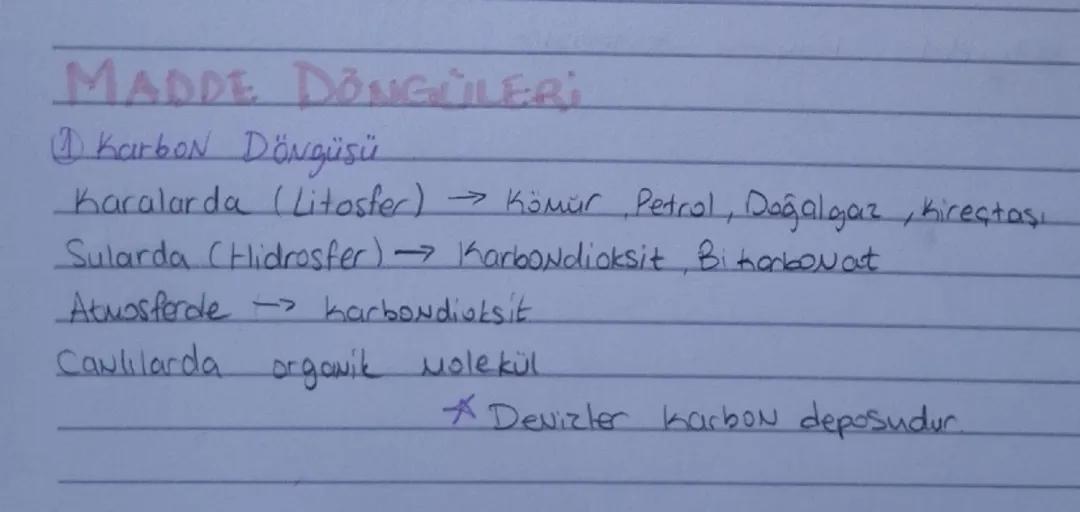 MADDE DÖNGÜLERİ
① Karbon Döngüsü
Karalarda (Litosfer) → Kömür, Petrol, Doğalgaz, Kireçtaşı
Sularda (Hidrosfer) → Karbondioksit, Bikarbonat
Atmosferde → karbondioksit
Canlılarda organik molekül
☆ Denizler karbon deposudur.